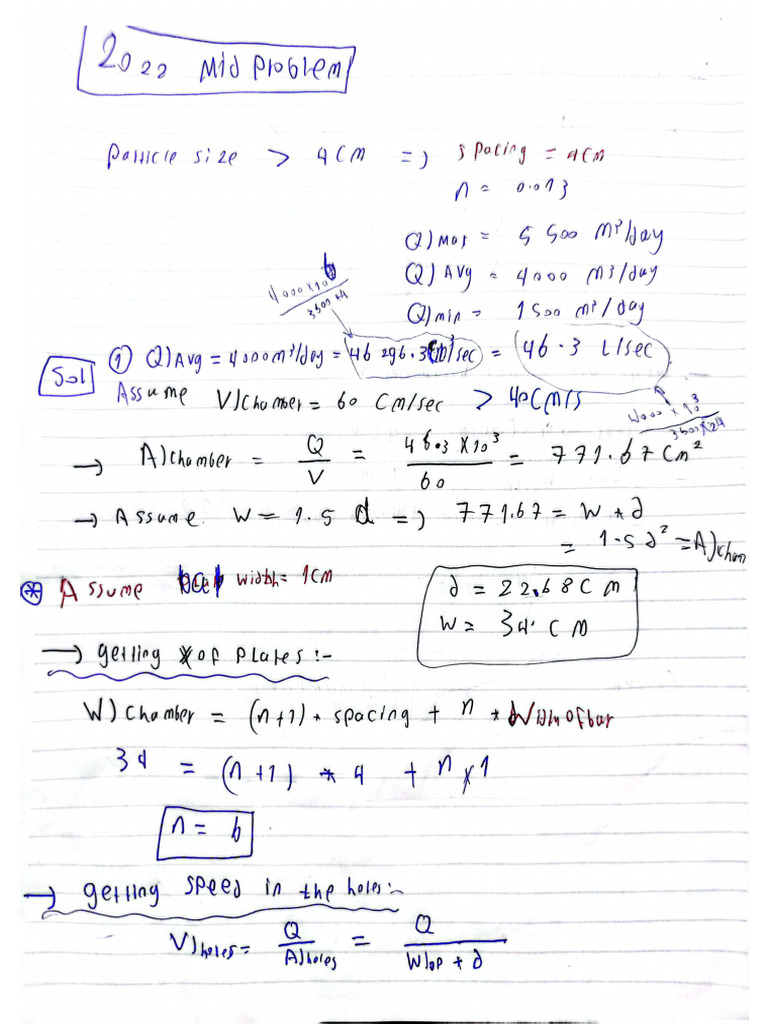 2022 Mid Problem
Particle size > 4 cm => spacing = 4cm
n = 0.013
Q)Max = 5 500 m³/day
Q)Avg = 4000 m³/day
Q)min = 1500 m³/day
4000×10⁶
3600*24
Sol
① Q)Avg = 4000m³/day = 46 296.3 cm³/sec = 46.3 L/sec
4000 × 10³
3600×24
Assume V)chamber = 60 cm/sec > 40cm/s
→ A)chamber = Q/V = 46.3 × 10³/60 = 771.67 cm²
→ Assume W = 1.5 d => 771.67 = W * d
= 1.5 d² = A)cham
* Assume bar width = 1cm
d = 22.68 cm
W = 34. cm
→ getting # of plates :-
W)chamber = (n+1) * spacing + n * width of bar
34 = (n+1) * 4 + n × 1
n = 6
→ getting speed in the holes:-
V)holes = Q/A)holes = Q/W)op * d